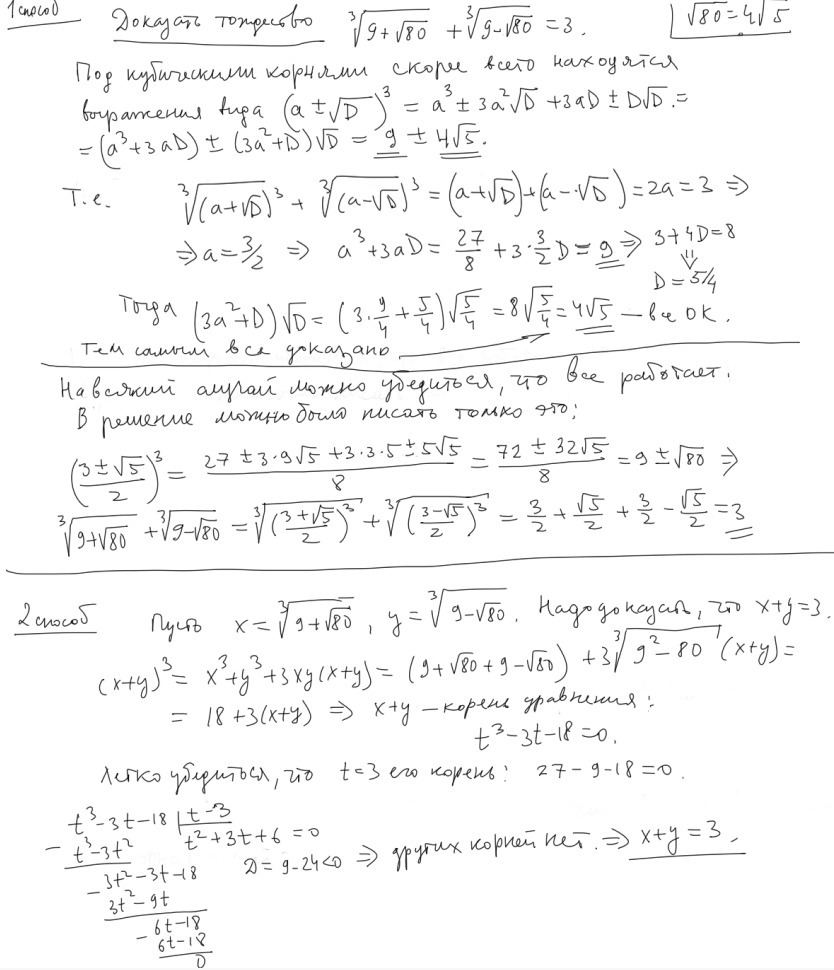 1 способ
Доказать тождество ∛(9+√80) + ∛(9-√80) = 3. √80 = 4√5
Под кубическими корнями скорее всего находятся
выражения вида (a ± √D)³ = a³ ± 3a²√D + 3aD ± D√D =
= (a³+3aD) ± (3a²+D)√D = 9 ± 4√5.
Т.е. ∛(a+√D)³ + ∛(a-√D)³ = (a+√D)+(a-√D) = 2a = 3 ⇒
⇒ a = 3/2 ⇒ a³+3aD = 27/8 + 3·3/2 D = 9 ⇒ 3+4D=8
⇓
D = 5/4
Тогда (3a²+D)√D = (3·9/4 + 5/4)√(5/4) = 8√(5/4) = 4√5 — все ОК.
Тем самым все доказано
На всякий случай можно убедиться, что все работает.
В решение можно было писать только это:
((3±√5)/2)³ = (27 ± 3·9√5 + 3·3·5 ± 5√5)/8 = (72 ± 32√5)/8 = 9 ± √80 ⇒
∛(9+√80) + ∛(9-√80) = ∛((3+√5)/2)³ + ∛((3-√5)/2)³ = 3/2 + √5/2 + 3/2 - √5/2 = 3
2 способ Пусть x = ∛(9+√80), y = ∛(9-√80). Надо доказать, что x+y=3.
(x+y)³ = x³+y³+3xy(x+y) = (9+√80+9-√80) + 3∛(9²-80) (x+y) =
= 18+3(x+y) ⇒ x+y — корень уравнения:
t³-3t-18=0.
Легко убедиться, что t=3 его корень: 27-9-18=0.
t³-3t-18 | t-3
- t³-3t² t²+3t+6 = 0
3t²-3t-18 D = 9-24<0 ⇒ других корней нет. ⇒ x+y = 3.
- 3t²-9t
6t-18
- 6t-18
0